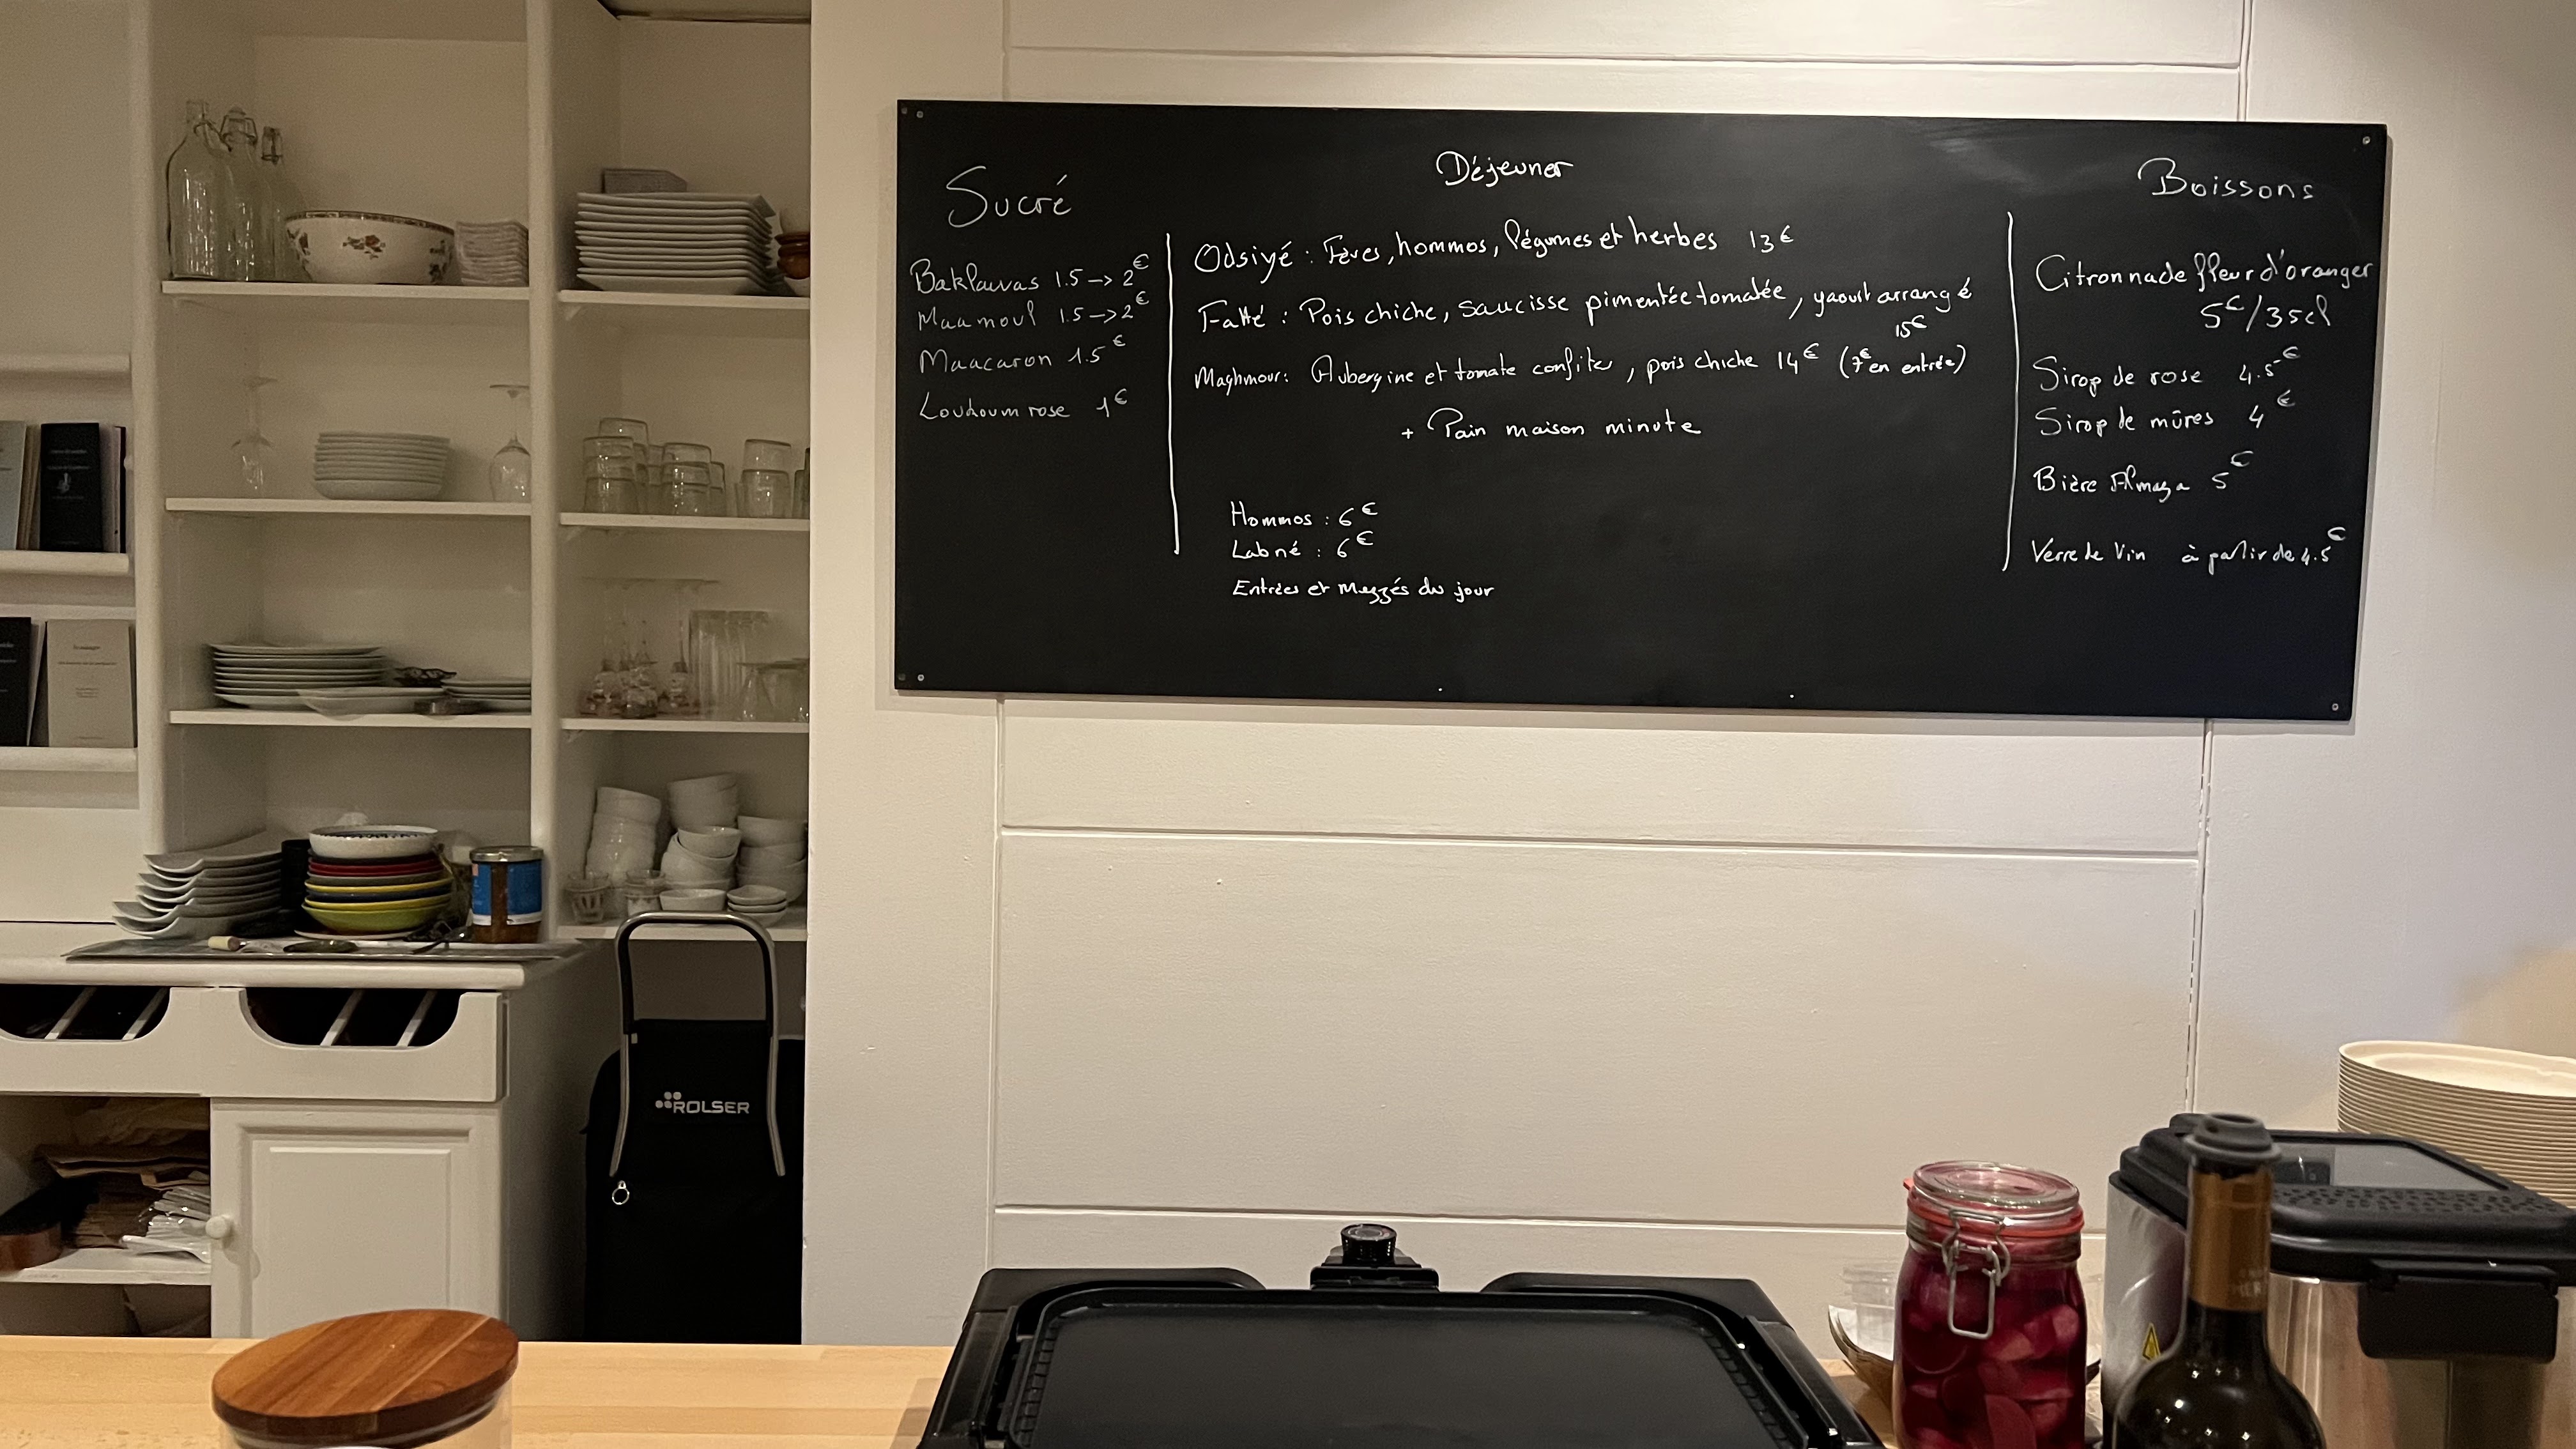 Sucré
Baklawas 1.5 → 2€
Maamoul 1.5 → 2€
Maacaron 1.5€
Loukoum rose 1€
Déjeuner
Odsiyé : Fèves, hommos, légumes et herbes 13€
Fatté : Pois chiche, saucisse pimentée tomatée, yaourt arrangé
15€
Maghmour : Aubergine et tomate confites, pois chiche 14€ (7€ en entrée)
+ Pain maison minute
Hommos : 6€
Labné : 6€
Entrées et mezzés du jour
Boissons
Citronnade fleur d'oranger
5€/35cl
Sirop de rose 4.5€
Sirop de mûres 4€
Bière Almaza 5€
Verre de vin à partir de 4.5€
ROLSER